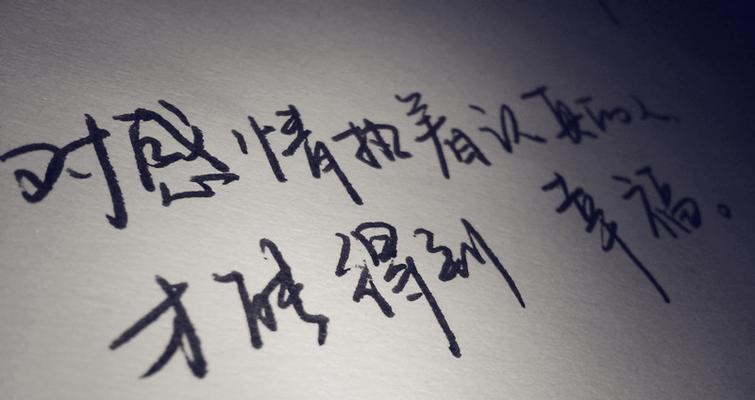 对感情执着认真的人
才能得到幸福。